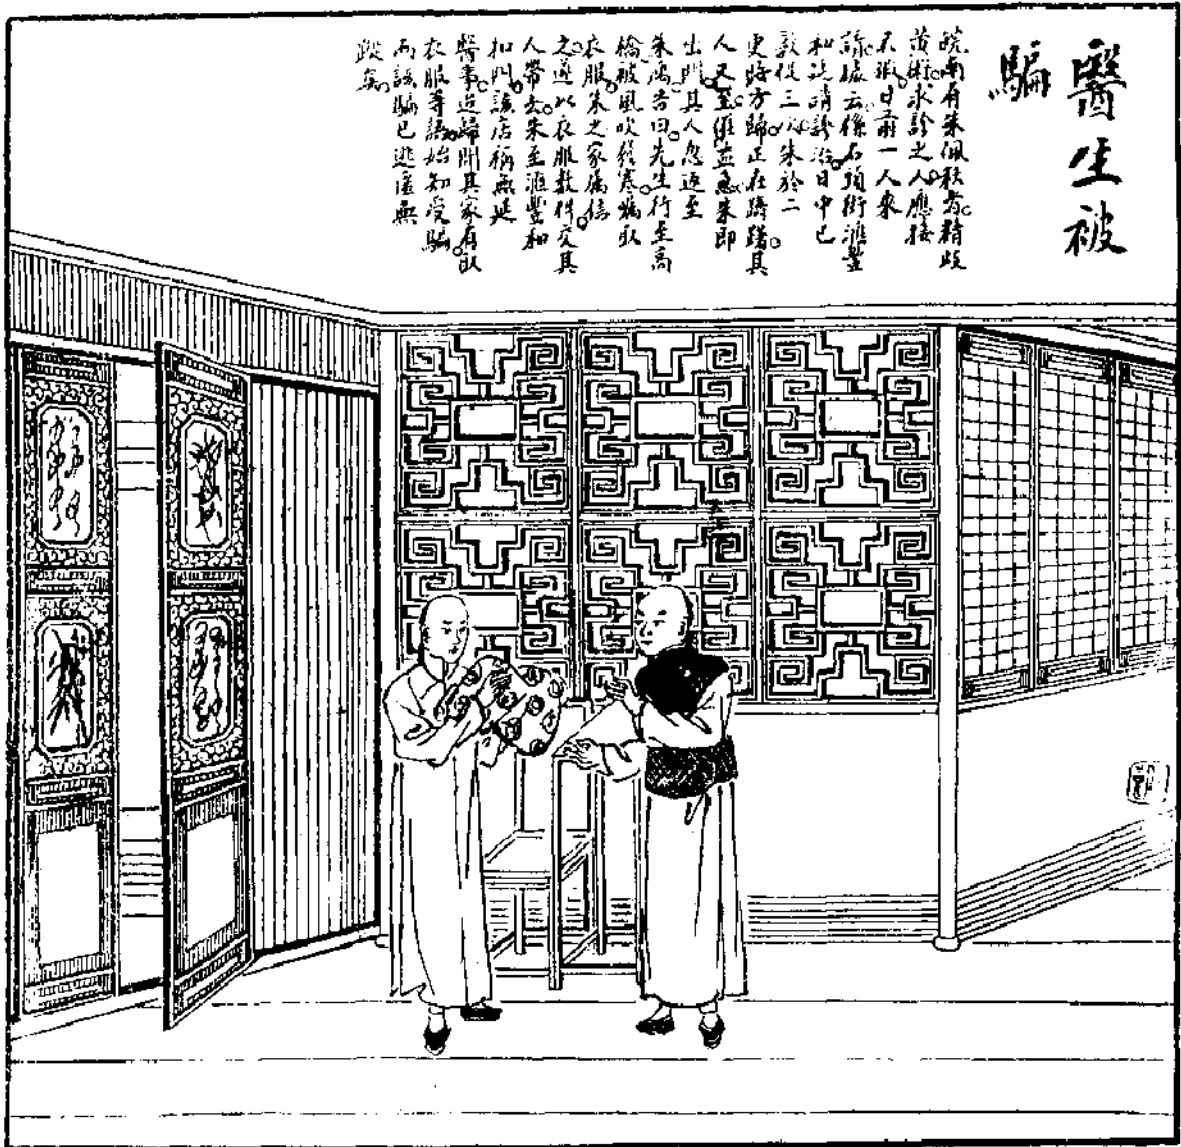 醫生被
騙
皖南有朱佩秋者精岐
黃術求診之人應接
不暇日前一人來
掾云係石頭街滙豐
和請診治日中已
敦促三次朱於二
更時方歸正在躊躇其
人又至催益急朱即
出門其人忽返至
朱寓告曰先生行至高
橋被風吹徑寒囑取
衣服朱之家屬信
之遂以衣服數件交其
人帶去朱至滙豐和
扣門該店稱無延
醫事迨歸聞其家有取
衣服等語始知受騙
而該騙已逃匿無
蹤矣